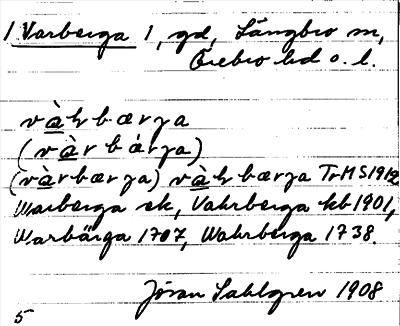 1 Varberga 1, gd, Längbro sn,
Örebro hd o. l.
và̱hbærga
(và̱rbærga)
(và̱rbærga) và̱hbærga TrHS 1912
Warberga ek, Vahrberga kb 1901,
Warbärga 1707, Wahrberga 1738.
Jöran Sahlgren 1908
5